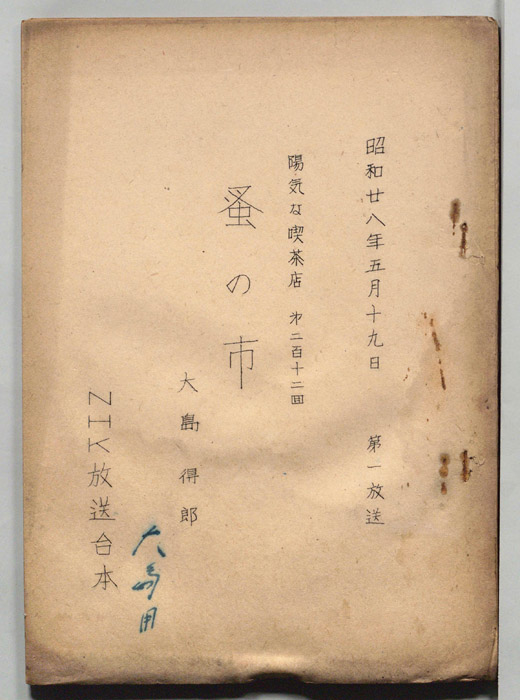 昭和廿八年五月十九日 第一放送
陽気な喫茶店 㐧二百十二回
蚤の市
大島得郎
NHK放送台本
大島用